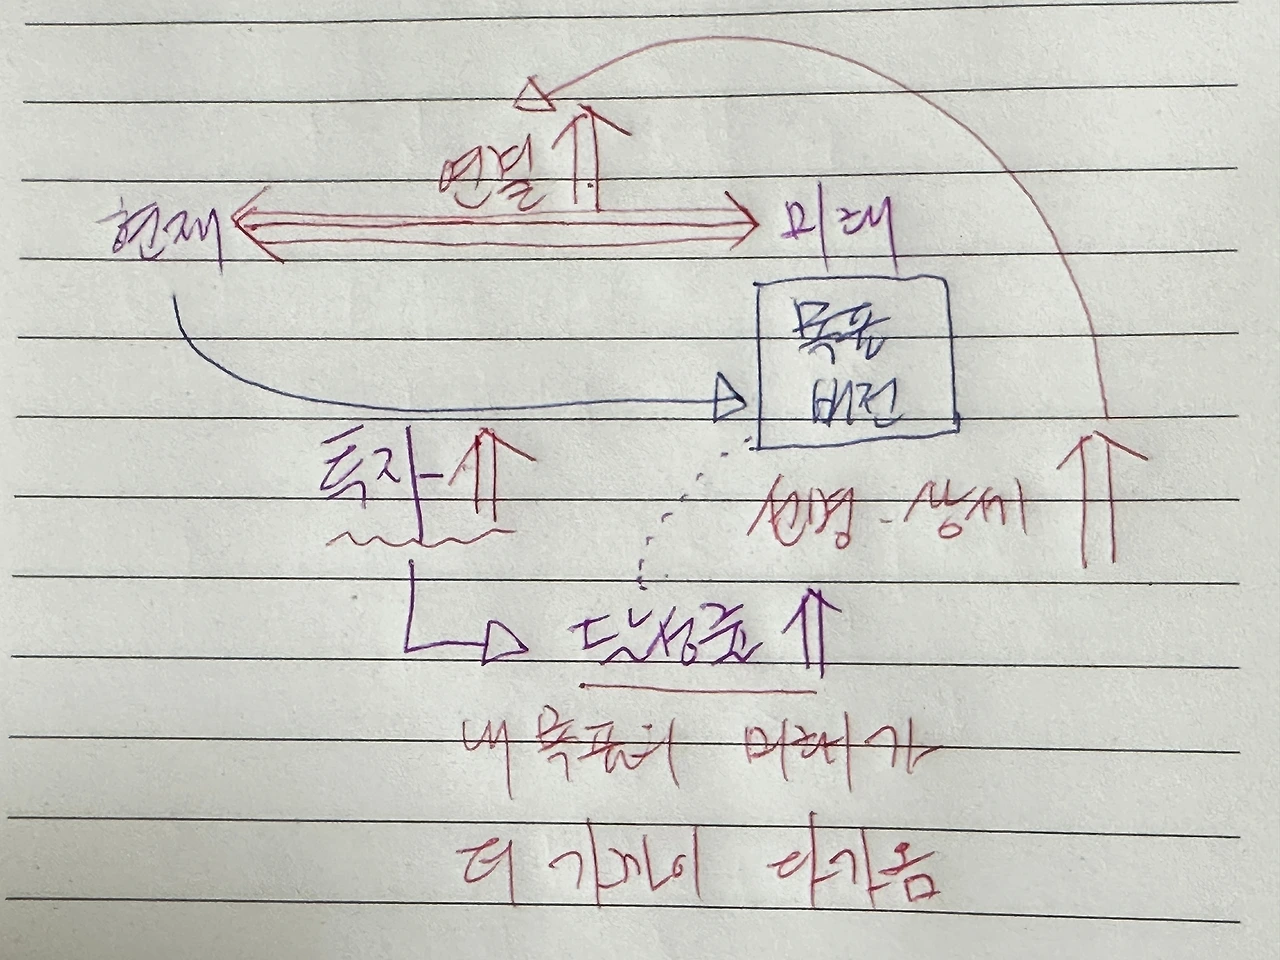 연결
현재
미래
목표
비전
투자
선명 - 상세
달성률
내 목표의 미래가
더 가까이 다가옴